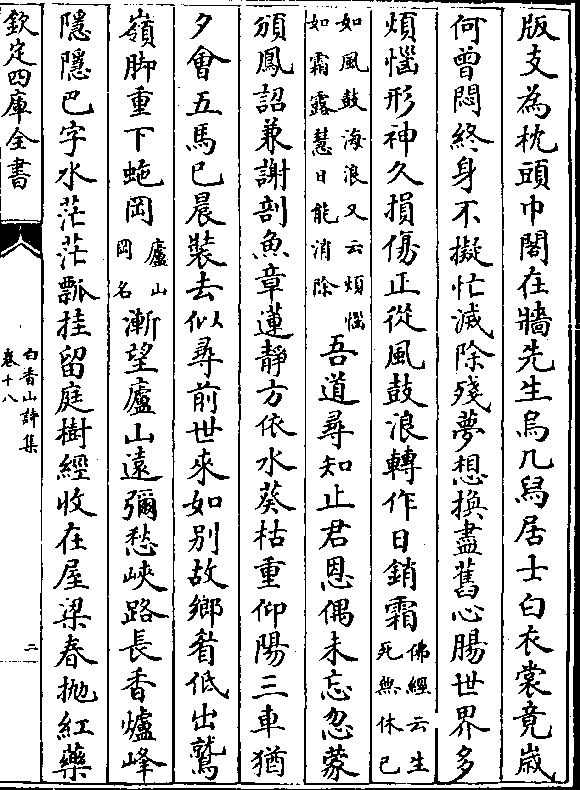 版支為枕頭巾閣在牆先生烏几舄居士白衣裳竟歲
何曾悶終身不擬忙滅除殘夢想換盡舊心腸世界多
煩惱形神久損傷正從風鼓浪轉作日銷霜佛經云生死無休已
如風鼓海浪又云煩惱如霜露慧日能消除吾道尋知止君恩偶未忘忽蒙
頒鳳詔兼謝剖魚章蓮靜方依水葵枯重仰陽三車猶
夕會五馬已晨裝去似尋前世來如別故鄉眉低出鷲
嶺脚重下虵岡廬山岡名漸望廬山遠彌愁峽路長香爐峰
隱隱巴字水茫茫瓢挂留庭樹經收在屋梁春抛紅藥
欽定四庫全書
白香山詩集
卷十八
二